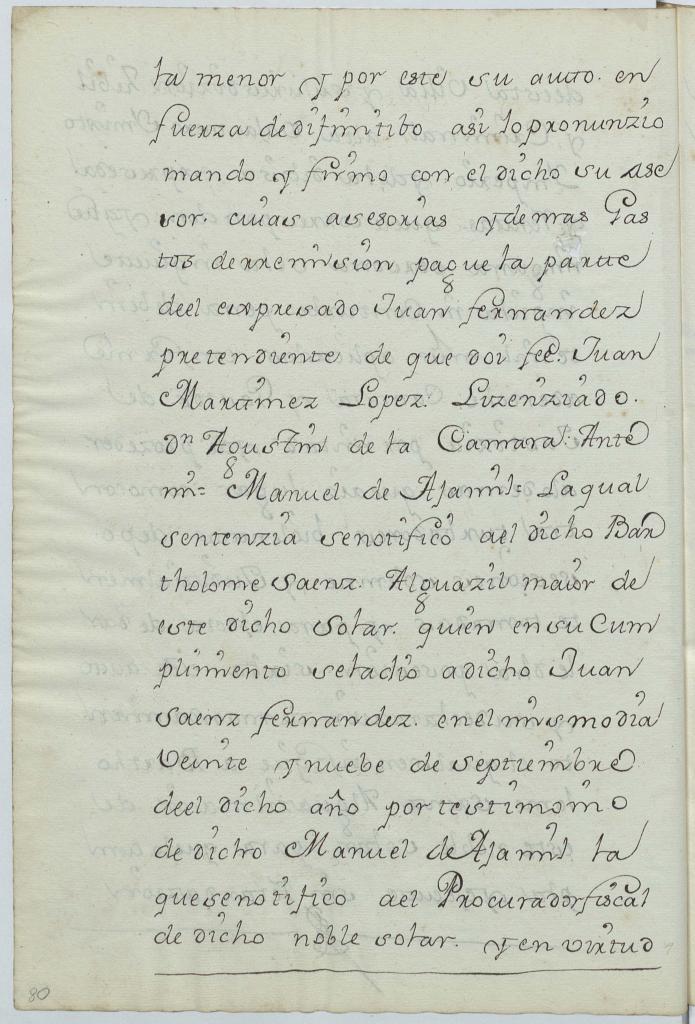 la menor y por este su autto. en
fuerza de difinitibo asi lo pronunzio
mando y firmo con el dicho su Ase
sor. cuias asesorias y demas Gas
tos de rremision pague la partte
deel expresado Juan fernandez
pretendiente de que doi fee. Juan
Martinez Lopez. Lizenziado.
Dn Agustin de la Camara. Ante
mi= Manuel de Ajamil= La qual
sentenzia se notificó ael dicho Bar
tholome Saenz. Alguazil maior de
este dicho Solar. quien en su Cum
plimiento se la dio a dicho Juan
Saenz fernandez. en el mismo dia
Veinte y nuebe de septiembre
deel dicho año por testimonio
de dicho Manuel de Ajamil la
que se notifico ael Procurador fiscal
de dicho noble solar. y en virtud
80